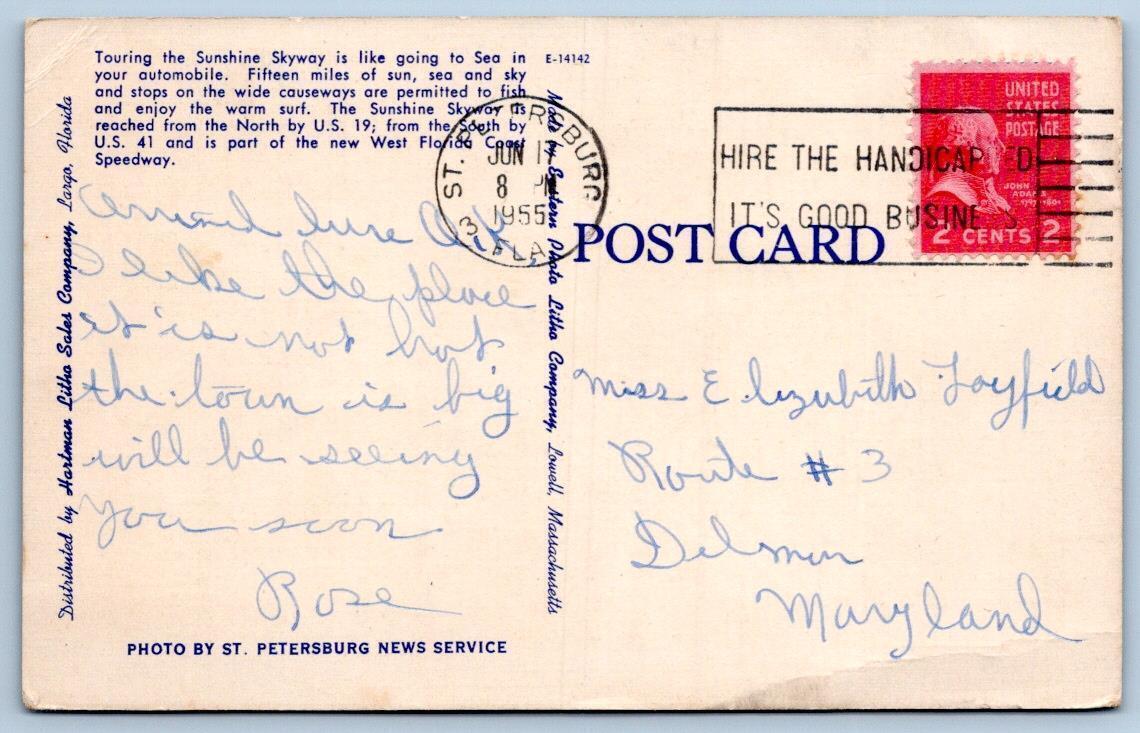 Touring the Sunshine Skyway is like going to Sea in
your automobile. Fifteen miles of sun, sea and sky
and stops on the wide causeways are permitted to fish
and enjoy the warm surf. The Sunshine Skyway is
reached from the North by U.S. 19; from the South by
U.S. 41 and is part of the new West Florida Coast
Speedway.
E-14142
Arrived here O.K.
I like the place
it is not hot
the town is big
will be seeing
you soon
Rose
PHOTO BY ST. PETERSBURG NEWS SERVICE
Distributed by Hartman Litho Sales Company, Largo, Florida
Made by Eastern Photo Litho Company, Lowell, Massachusetts
ST. PETERSBURG
JUN 17
8 PM
1955
3 FLA.
HIRE THE HANDICAP ED
IT'S GOOD BUSINE S
UNITED
STATES
POSTAGE
JOHN
ADAMS
2 CENTS 2
POST CARD
Miss Elizabeth Layfield
Route # 3
Delmar
Maryland